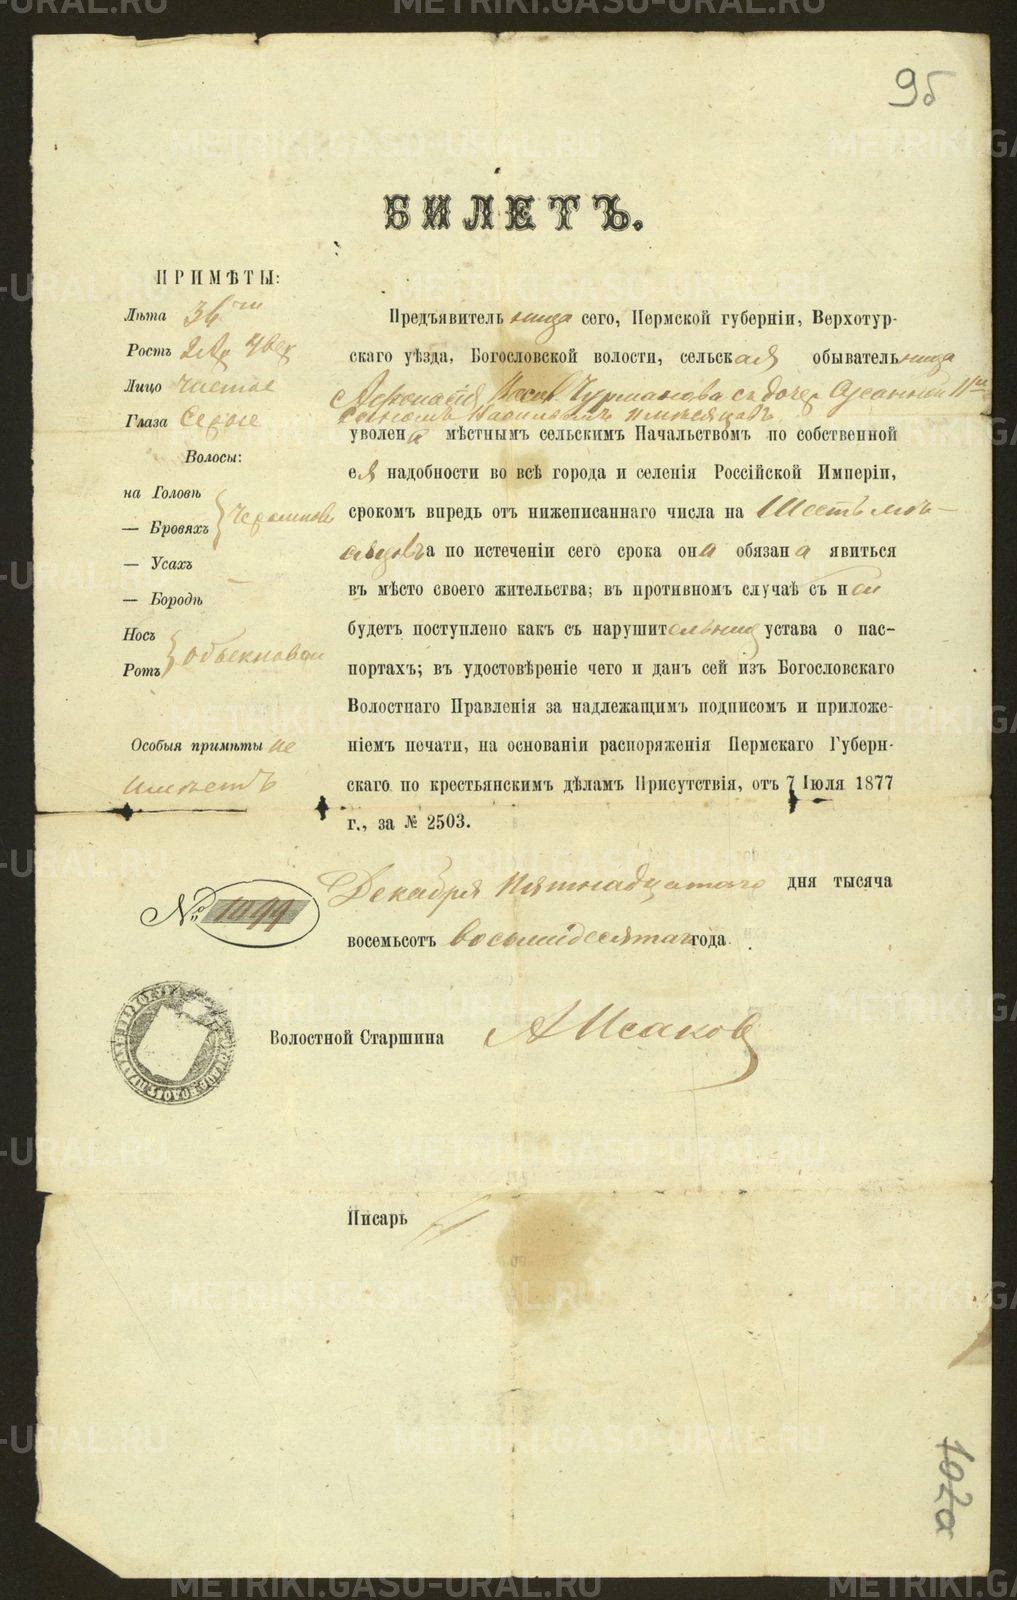 95
БИЛЕТЪ.
ПРИМѢТЫ:
Лѣта 36
Ростъ 2 Ар 4 вер
Лицо чистое
Глаза Серые
Волосы:
на Головѣ
— Бровяхъ
— Усахъ
— Бородѣ
Носъ
Ротъ
Особыя примѣты не
имѣетъ
№ 1099
Предъявительница сего, Пермской губерніи, Верхотур-
скаго уѣзда, Богословской волости, сельская обывательница
Чурманова съ дочер
уволена мѣстнымъ сельскимъ Начальствомъ по собственной
ея надобности во всѣ города и селенія Россійской Имперіи,
срокомъ впредь отъ нижеписаннаго числа на Шесть мѣ-
сяцовъ а по истеченіи сего срока она обязана явиться
въ мѣсто своего жительства; въ противномъ случаѣ съ ней
будетъ поступлено какъ съ нарушительницей устава о пас-
портахъ; въ удостовѣреніе чего и данъ сей изъ Богословскаго
Волостнаго Правленія за надлежащимъ подписомъ и приложе-
ніемъ печати, на основаніи распоряженія Пермскаго Губерн-
скаго по крестьянскимъ дѣламъ Присутствія, отъ 7 Іюля 1877
г., за № 2503.
Декабря пятнадцатаго дня тысяча
восемьсотъ восьмидесятаго года.
Волостной Старшина А Исаков
Писарь
102а
METRIKI.GASO-URAL.RU